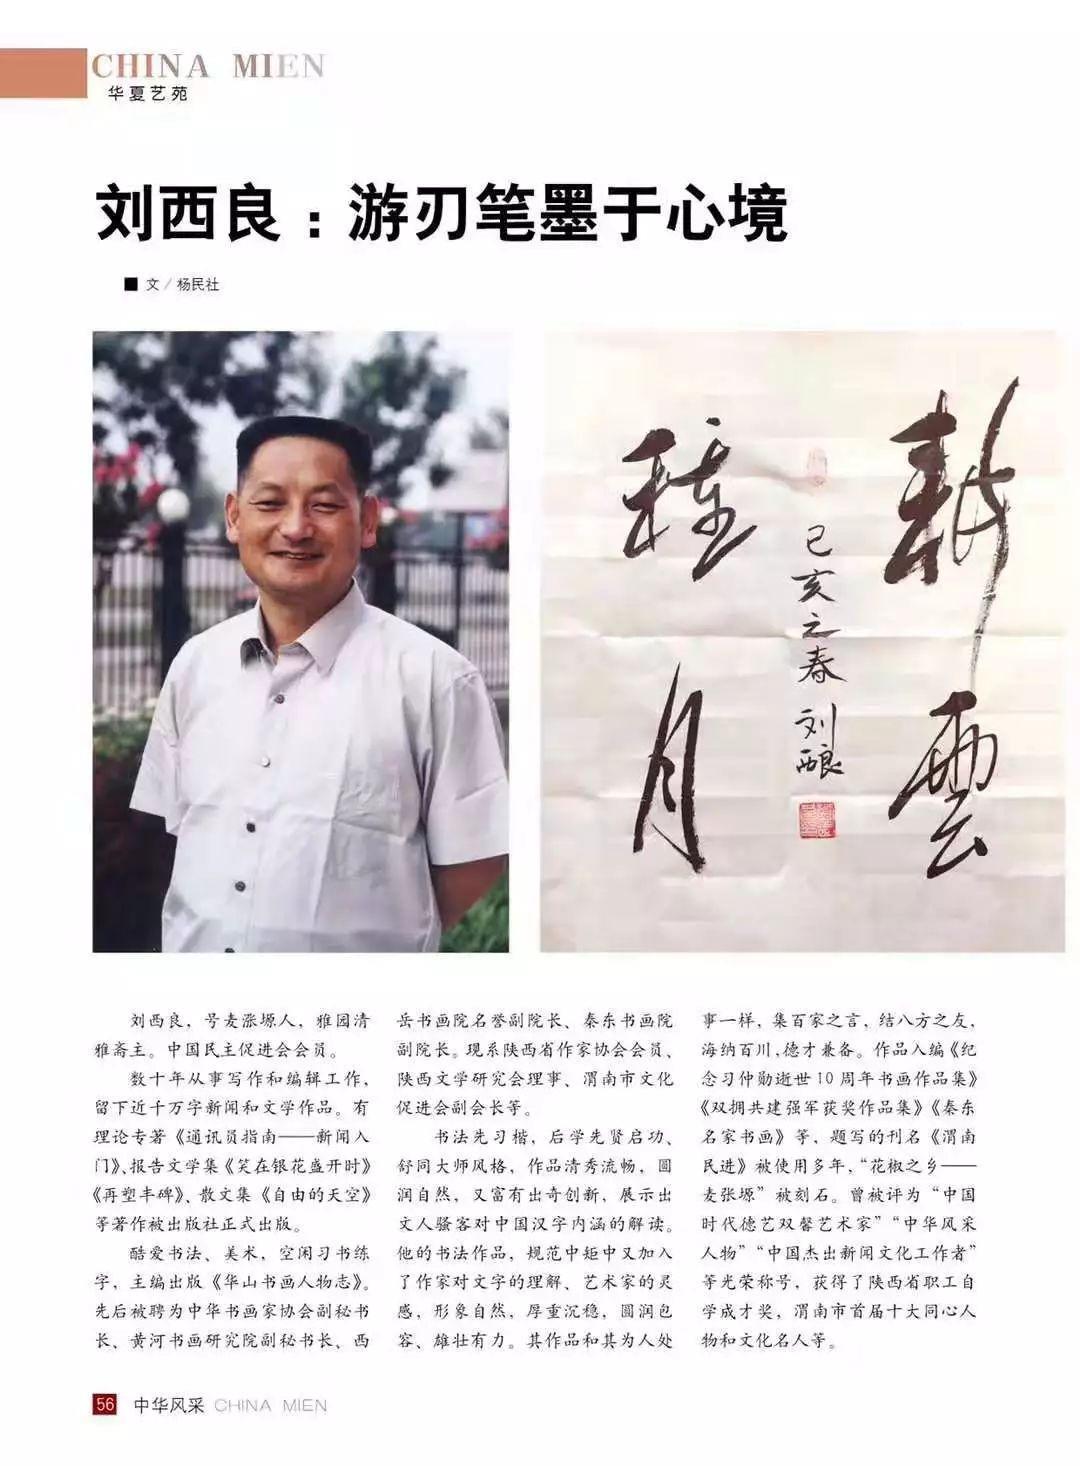 CHINA MIEN
华夏艺苑
刘西良：游刃笔墨于心境
■ 文／杨民社
耕云
种月
己亥之春 刘西良
刘西良，号麦涨塬人，雅园清
雅斋主。中国民主促进会会员。
数十年从事写作和编辑工作，
留下近千万字新闻和文学作品。有
理论专著《通讯员指南——新闻入
门》、报告文学集《笑在银花盛开时》
《再塑丰碑》、散文集《自由的天空》
等著作被出版社正式出版。
酷爱书法、美术，空闲习书练
字，主编出版《华山书画人物志》。
先后被聘为中华书画家协会副秘书
长、黄河书画研究院副秘书长、西
岳书画院名誉副院长、秦东书画院
副院长。现系陕西省作家协会会员、
陕西文学研究会理事、渭南市文化
促进会副会长等。
书法先习楷，后学先贤启功、
舒同大师风格，作品清秀流畅，圆
润自然，又富有出奇创新，展示出
文人骚客对中国汉字内涵的解读。
他的书法作品，规范中矩中又加入
了作家对文字的理解、艺术家的灵
感，形象自然，厚重沉稳，圆润包
容、雄壮有力。其作品和其为人处
事一样，集百家之言，结八方之友，
海纳百川，德才兼备。作品入编《纪
念习仲勋逝世10周年书画作品集》
《双拥共建强军获奖作品集》《秦东
名家书画》等，题写的刊名《渭南
民进》被使用多年，“花椒之乡——
麦张塬”被刻石。曾被评为“中国
时代德艺双馨艺术家”“中华风采
人物”“中国杰出新闻文化工作者”
等光荣称号，获得了陕西省职工自
学成才奖，渭南市首届十大同心人
物和文化名人等。
56 中华风采 CHINA MIEN